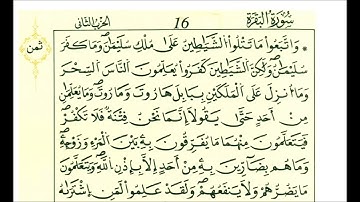 سُورَةُ الْبَقَرَةِ 16 الحزب الثاني
ثمن
وَاتَّبَعُواْ مَا تَتْلُواْ الشَّيَاطِينُ عَلَىٰ مُلْكِ سُلَيْمَٰنَ وَمَا كَفَرَ
سُلَيْمَٰنُ وَلَٰكِنَّ الشَّيَاطِينَ كَفَرُواْ يُعَلِّمُونَ النَّاسَ السِّحْرَ
وَمَا أُنزِلَ عَلَى الْمَلَكَيْنِ بِبَابِلَ هَارُوتَ وَمَارُوتَ وَمَا يُعَلِّمَانِ
مِنْ أَحَدٍ حَتَّىٰ يَقُولَا إِنَّمَا نَحْنُ فِتْنَةٌ فَلَا تَكْفُرْ
فَيَتَعَلَّمُونَ مِنْهُمَا مَا يُفَرِّقُونَ بِهِ بَيْنَ الْمَرْءِ وَزَوْجِهِ
وَمَا هُم بِضَارِّينَ بِهِ مِنْ أَحَدٍ إِلَّا بِإِذْنِ اللَّهِ وَيَتَعَلَّمُونَ
مَا يَضُرُّهُمْ وَلَا يَنفَعُهُمْ وَلَقَدْ عَلِمُواْ لَمَنِ اشْتَرَىٰهُ